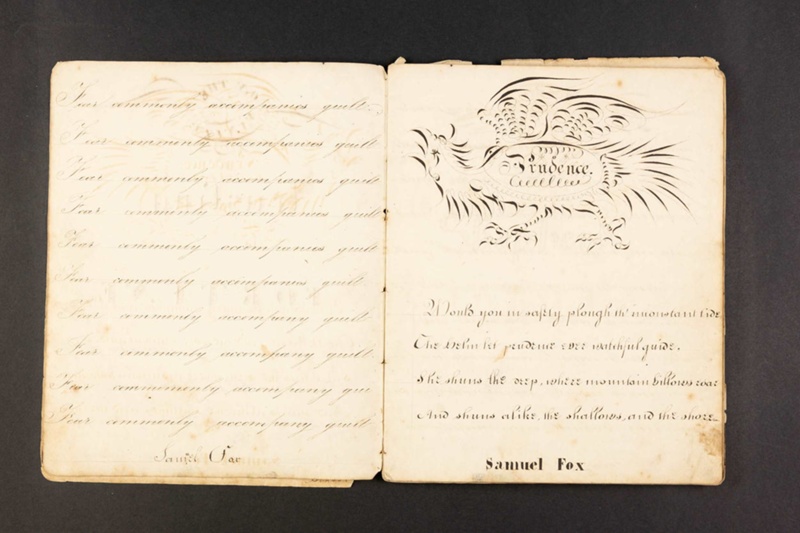 Fear commonly accompanies guilt
Fear commonly accompanies guilt
Fear commonly accompanies guilt
Fear commonly accompanies guilt
Fear commonly accompanies guilt
Fear commonly accompanies guilt
Fear commonly accompany guilt
Fear commonly accompany guilt
Fear commonly accompany gui
Fear commonly accompany guilt
Samuel Fox
Prudence.
Would you in safety plough th' inconstant tide
The helm let prudence ever watchful guide.
She shuns the deep, where mountain billows roar
And shuns alike, the shallows, and the shore
Samuel Fox